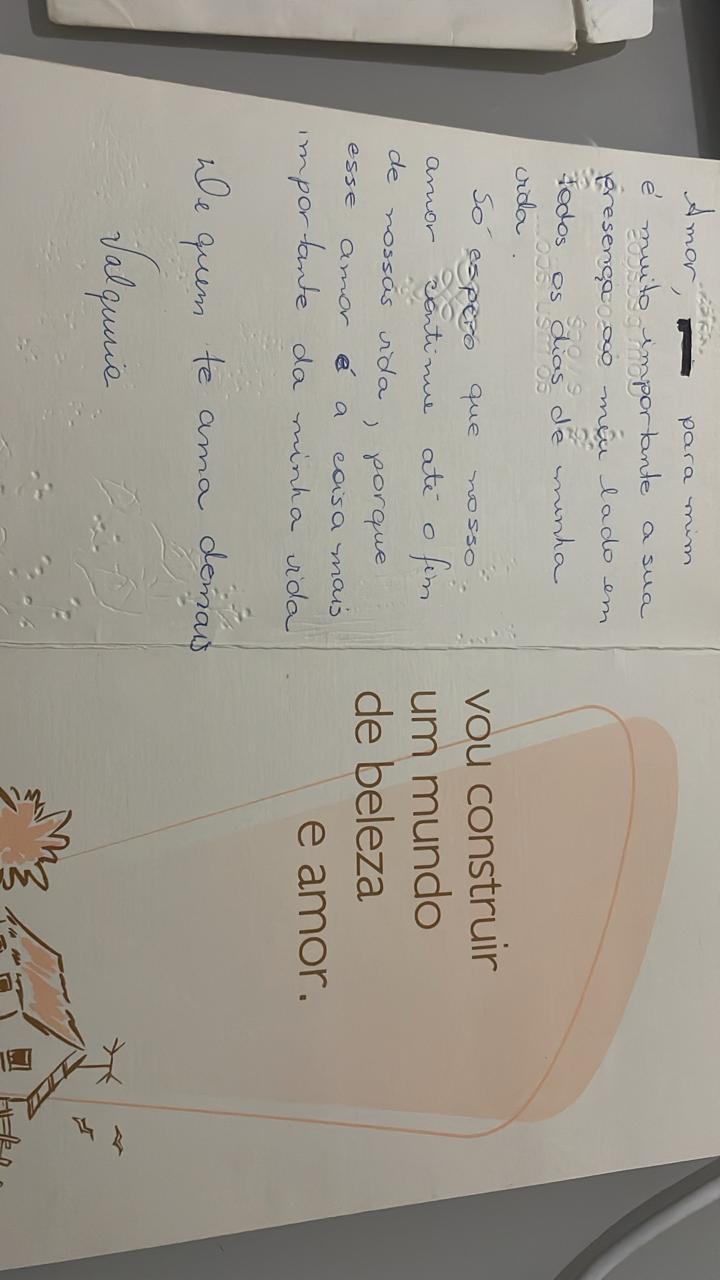 Amor, para mim
é muito importante a sua
presença ao meu lado em
todos os dias de minha
vida.
Só espero que nosso
amor continue até o fim
de nossas vida, porque
esse amor é a coisa mais
importante da minha vida
De quem te ama demais
Valquiria
vou construir
um mundo
de beleza
e amor.